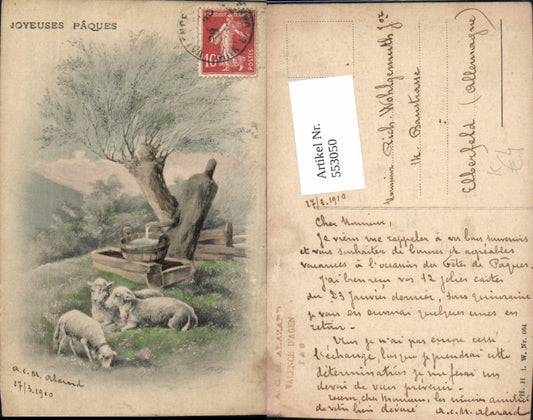 JOYEUSES PÂQUES
10
POSTES
a.c.M. Alazard
27/3.1910
Artikel Nr.
553050
Monsieur Rich. Wohlgemuth
Elberfeld (Allemagne)
27/3.1910
Cher Monsieur,
Je viens me rappeler à vos bons souvenirs
et vous souhaiter de bonnes et agréables
vacances à l'occasion des Fêtes de Pâques.
J'ai bien reçu vos 12 jolies cartes
du 23 Janvier dernier, sous quinzaine
je vais en envoyer quelques unes en
retour.
Vous je n'ai pas encore cessé
l'échange, lorsque je prendrai cette
détermination je me ferai un
devoir de vous prévenir.
cher Monsieur, les
de votre bien dévoué A.C.M. Alazard
ALAZARD
VALENCE D'AGEN
T & G
H. H. i. W. Nr. 604